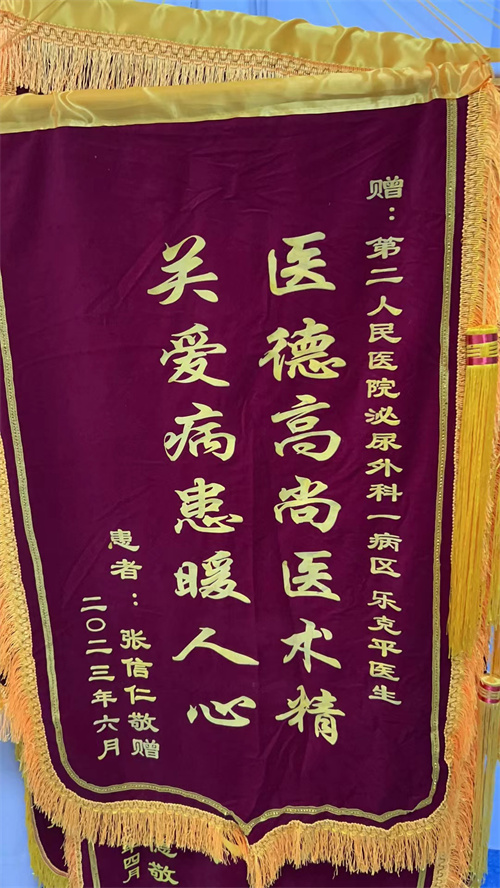 赠：第二人民医院泌尿外科一病区 乐克平医生
医德高尚医术精
关爱病患暖人心
患者：张信仁敬赠
二〇二三年六月
敬
四月